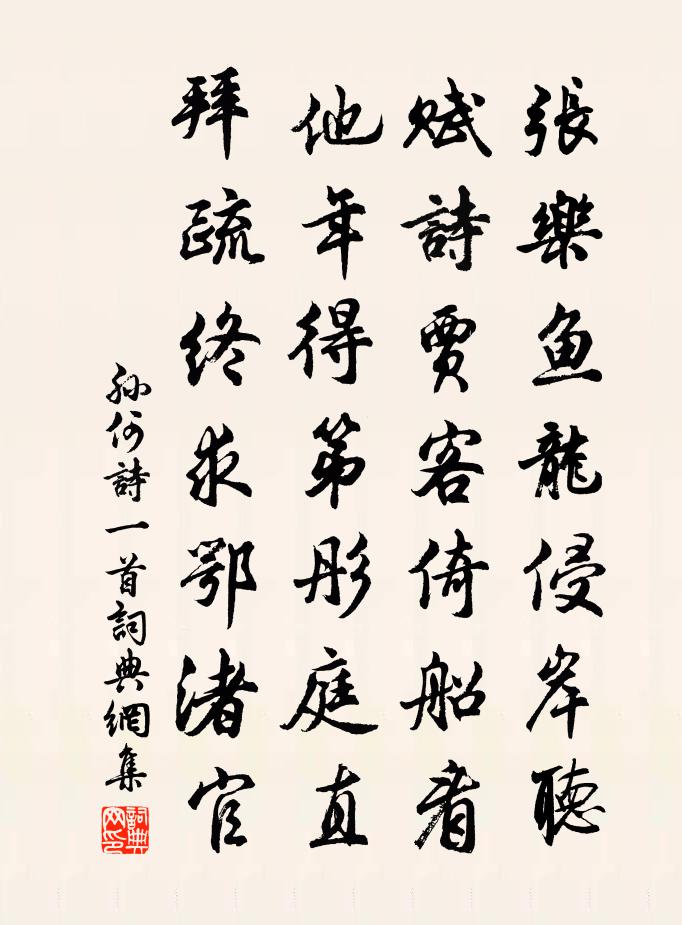 張樂魚龍侵岸聽
賦詩賈客倚船看
他年得第彤庭直
拜疏終求鄂渚官
孙何詩一首詞典網集
詞典网印